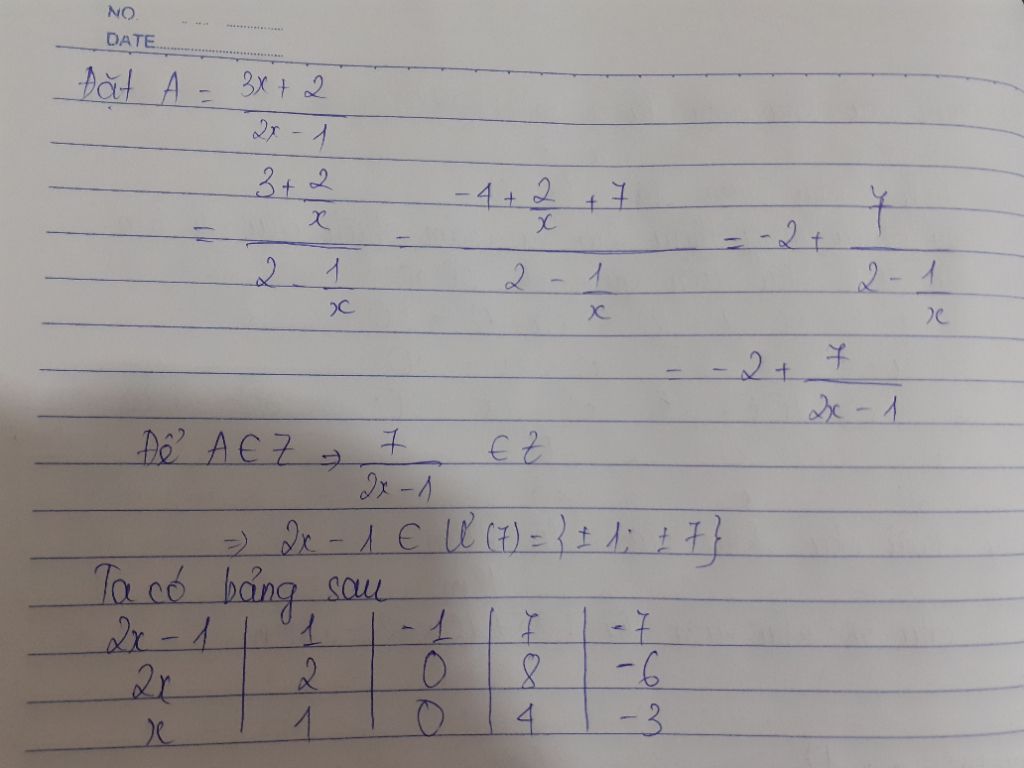 NO.
DATE
Đặt A = (3x + 2)/(2x - 1)
= (3 + 2/x)/(2 - 1/x) = (-4 + 2/x + 7)/(2 - 1/x) = -2 + 7/(2 - 1/x)
= -2 + 7/(2x - 1)
Để A ∈ Z ⇒ 7/(2x - 1) ∈ Z
⇒ 2x - 1 ∈ Ư(7) = {±1; ±7}
Ta có bảng sau
2x - 1 | 1 | -1 | 7 | -7
2x | 2 | 0 | 8 | -6
x | 1 | 0 | 4 | -3